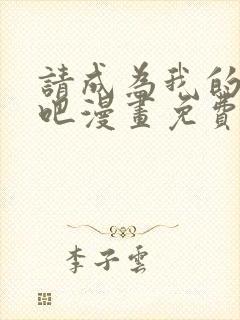 請成為我的
吧漫畫免費
李子雲